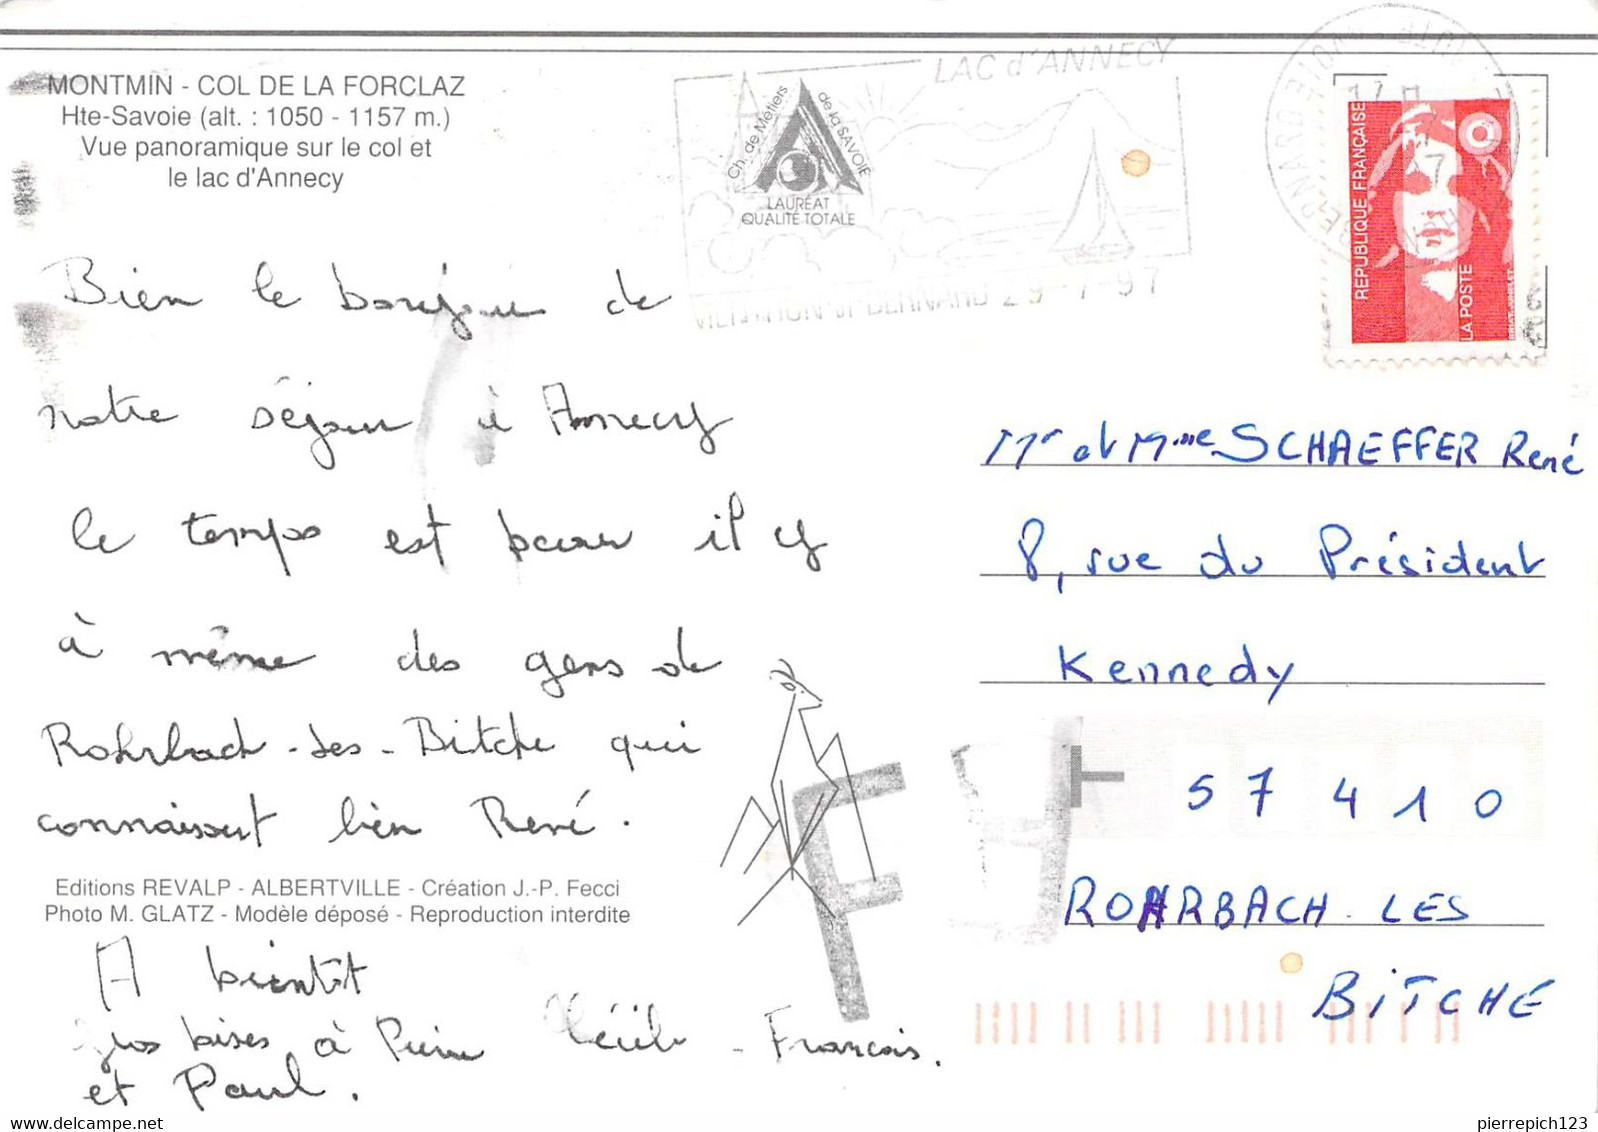 MONTMIN - COL DE LA FORCLAZ
Hte-Savoie (alt. : 1050 - 1157 m.)
Vue panoramique sur le col et
le lac d'Annecy
LAC d'ANNECY
Ch. de Métiers de la SAVOIE
LAURÉAT
QUALITÉ TOTALE
29-7-97
REPUBLIQUE FRANÇAISE
LA POSTE
Bien le bonjour de
notre séjour à Annecy
le temps est beau il y
à même des gens de
Rohrbach-les-Bitche qui
connaissent bien René.
Editions REVALP - ALBERTVILLE - Création J.-P. Fecci
Photo M. GLATZ - Modèle déposé - Reproduction interdite
A bientôt
Gros bises à Pierre
et Paul.
Cécile - Francois.
Mr et Mme SCHAEFFER René
8, rue du Président
Kennedy
57410
ROHRBACH-LES
BITCHE
pierrepich123